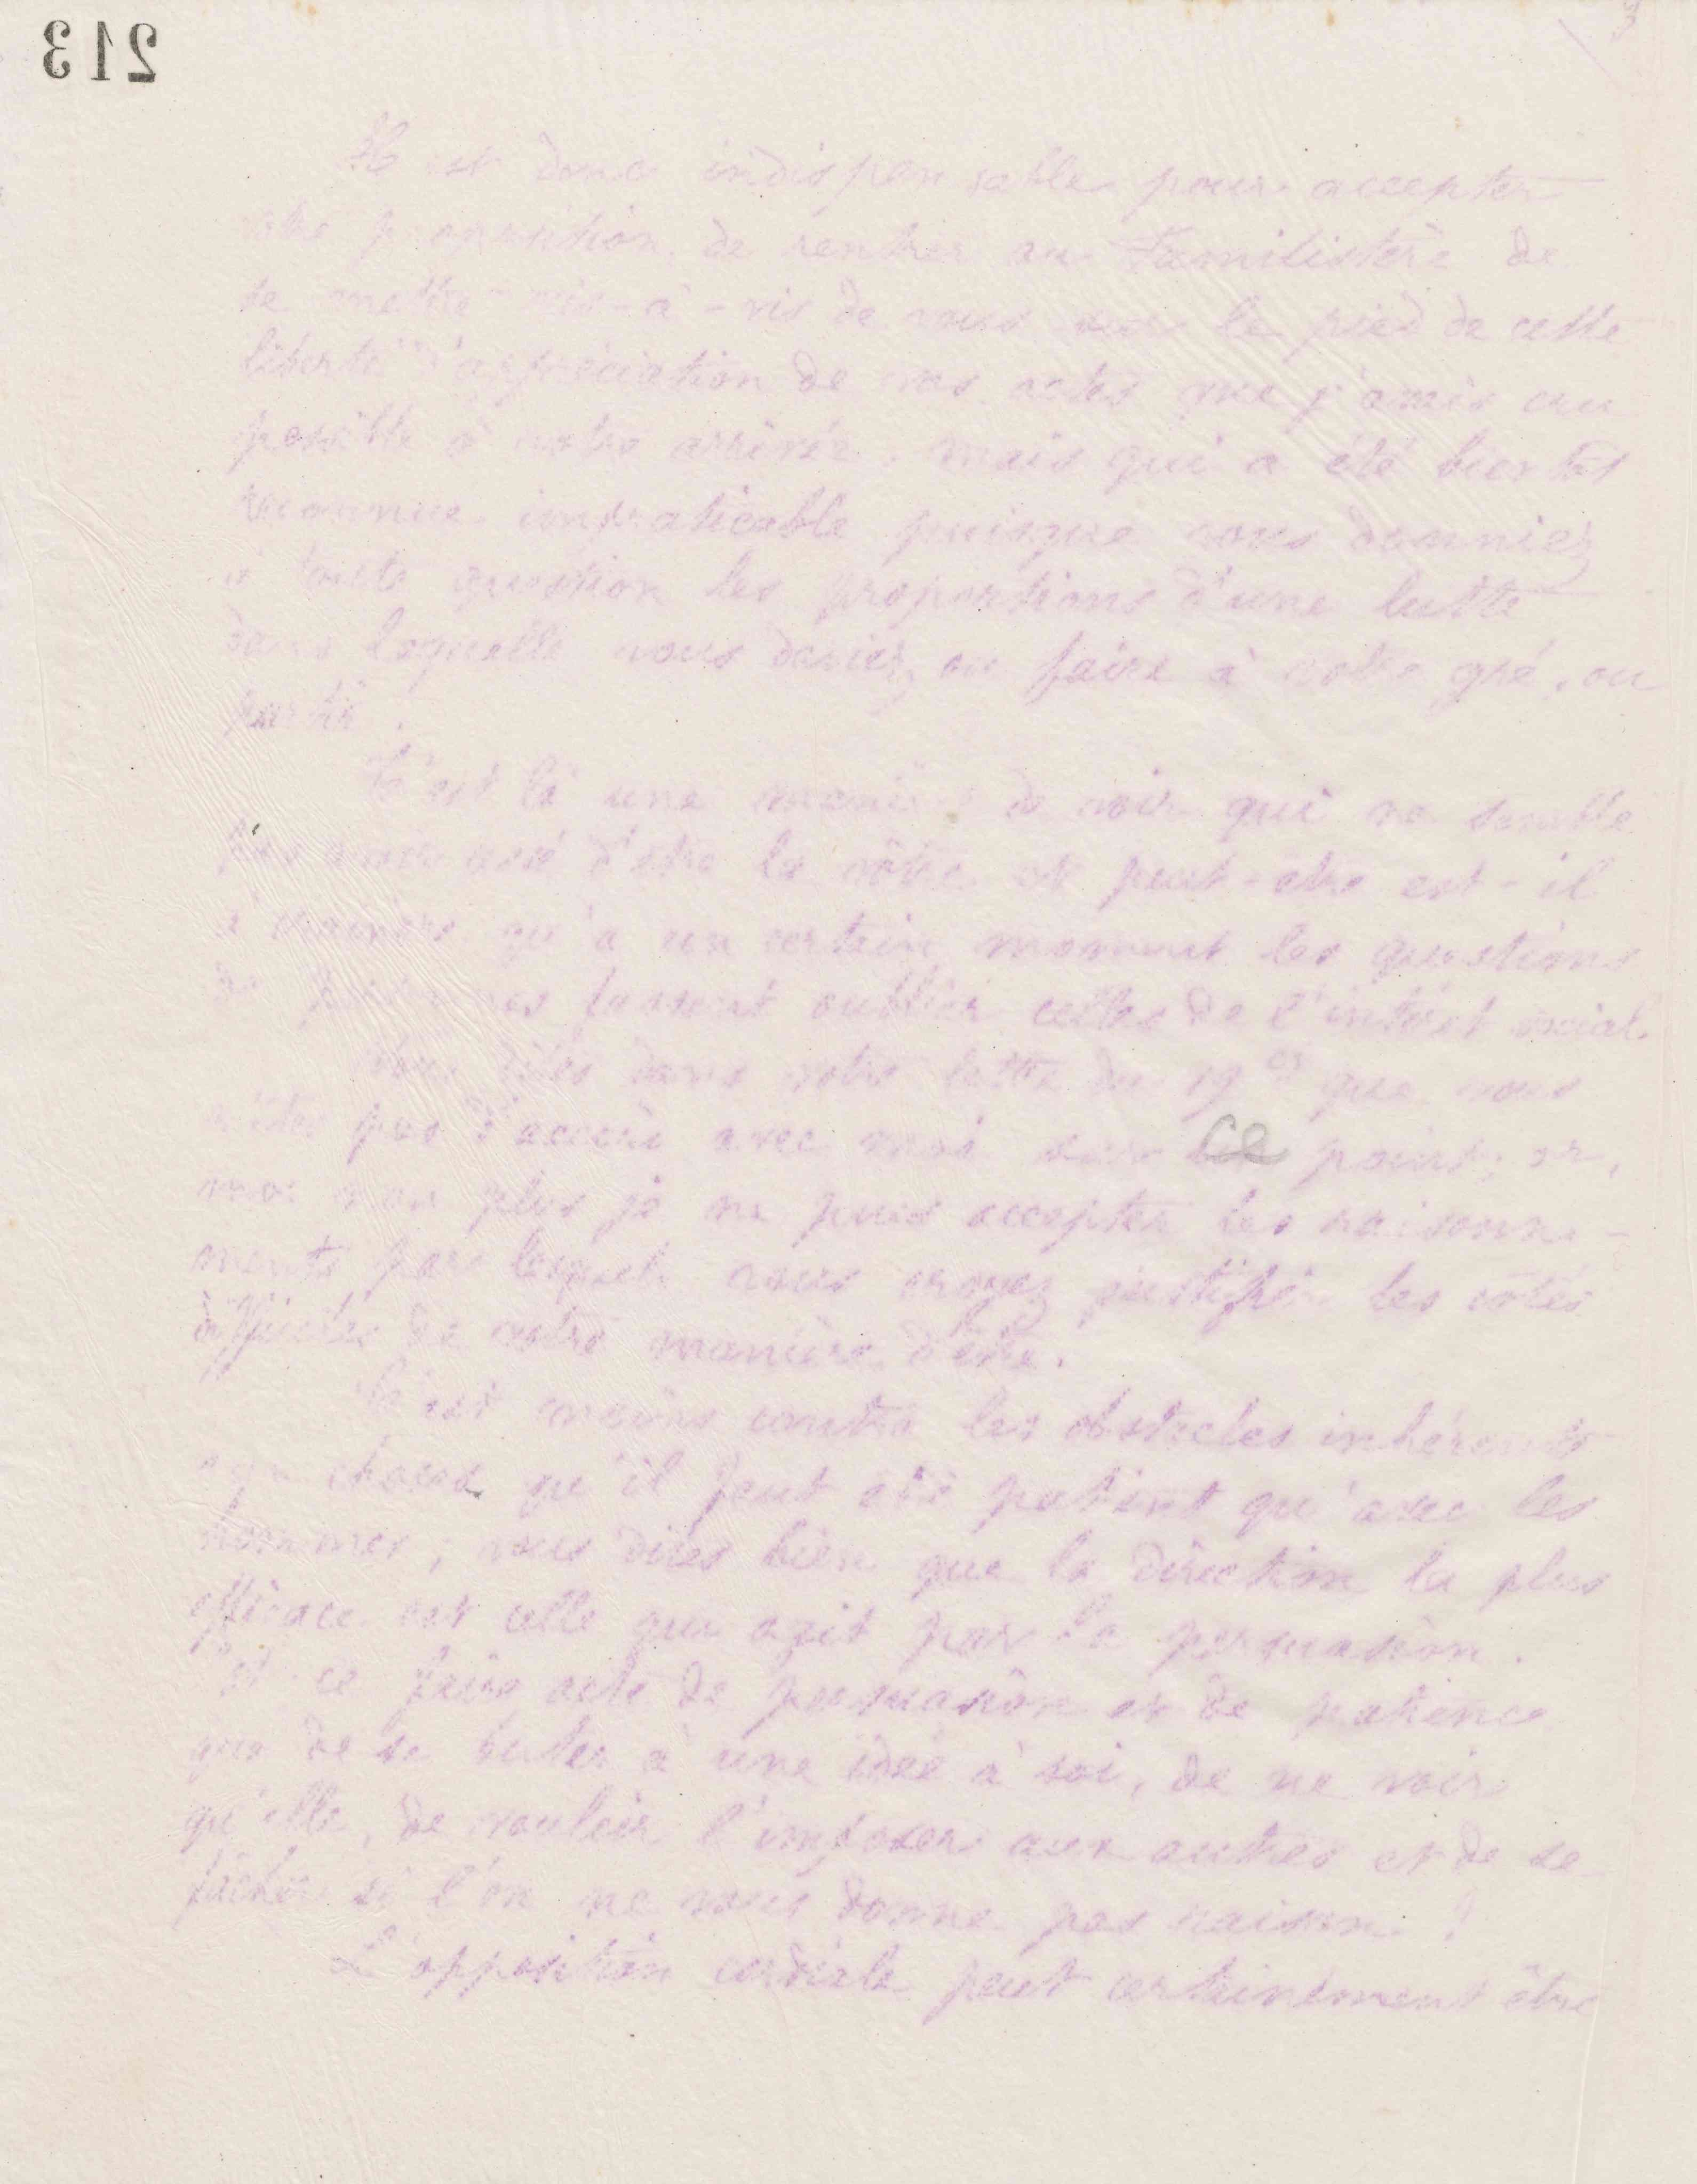 213
Il est donc indispensable pour accepter
votre proposition de rentrer au Familistère de
se mettre vis-à-vis de vous sur le pied de cette
liberté d'appréciation de vos actes que j'avais cru
possible à votre arrivée, mais qui a été bientôt
reconnue impraticable puisque vous donniez
à toute question les proportions d'une lutte
dans laquelle vous deviez, ou faire à votre gré, ou
partir.
C'est là une manière de voir qui ne semble
pas avoir cessé d'être la vôtre et peut-être est-il
à craindre qu'à un certain moment les questions
de personnes fassent oublier celles de l'intérêt social.
Vous dites dans votre lettre du 19 ct que vous
n'êtes pas d'accord avec moi sur ce point; or,
moi non plus je ne puis accepter les raisonne-
ments par lesquels vous croyez justifier les côtés
difficiles de votre manière d'être.
C'est moins contre les obstacles inhérents
aux choses qu'il faut être patient qu'avec les
hommes; vous dites bien que la direction la plus
efficace est celle qui agit par la persuasion.
Est-ce faire acte de persuasion et de patience
que de se buter à une idée à soi, de ne voir
qu'elle, de vouloir l'imposer aux autres et de se
fâcher si l'on ne vous donne pas raison ?
L'opposition cordiale peut certainement être